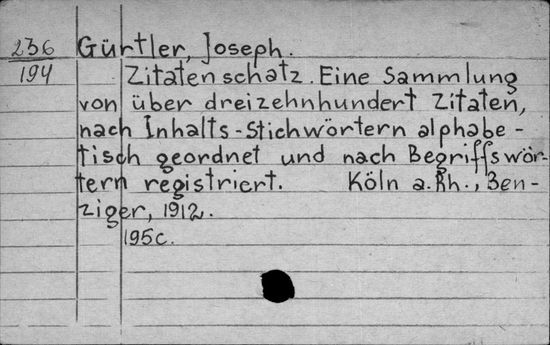 236 Gürtler, Joseph.
194 Zitatenschatz. Eine Sammlung
von über dreizehnhundert Zitaten,
nach Inhalts-Stichwörtern alphabe-
tisch geordnet und nach Begriffswör-
tern registriert. Köln a.Rh., Ben-
ziger, 1912.
195c.